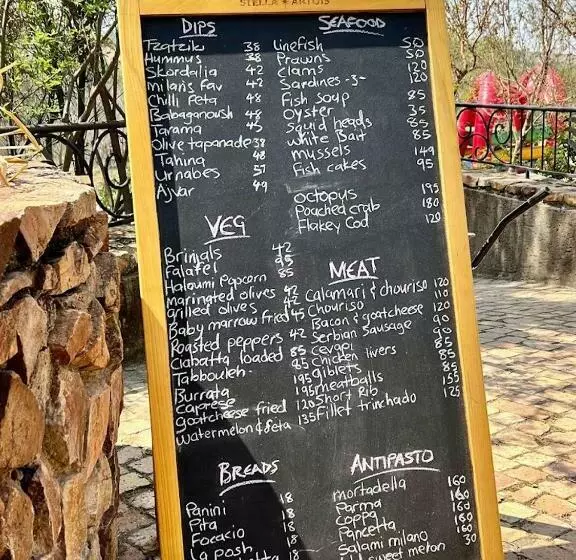 STELLA ARTOIS
DIPS
Tzatziki 38
Hummus 38
Skordalia 42
milan's Fav 42
Chilli Feta 48
Babaganoush 48
Tarama 45
Olive tapanade 38
Tahina 48
Urnabes 57
Ajvar 49
SEAFOOD
Linefish 50
Prawns 50
Clams 120
Sardines -3- 120
Fish soup 85
Oyster 35
Squid heads 85
White Bait 85
mussels 149
Fish cakes 95
Octopus 195
Poached crab 180
Flakey Cod 120
VEG
Brinjals 42
Falafel 95
Haloumi Popcorn 85
marinated olives 42
Grilled olives 42
Baby marrow fried 45
Roasted peppers 42
Ciabatta loaded 85
Tabbouleh 85
Burrata 195
Caprese 195
goatcheese fried 120
watermelon & feta 135
MEAT
Calamari & chouriso 120
Chouriso 110
Bacon & goatcheese 120
Serbian Sausage 90
Cevapi 90
Chicken livers 85
giblets 85
meatballs 85
Short Rib 155
Fillet trinchado 125
BREADS
Panini 18
Pita 18
Focacio 18
La posh 18
ANTIPASTO
mortadella 160
Parma 160
Coppa 160
Pancetta 160
Salami milano 160
sweet melon 30